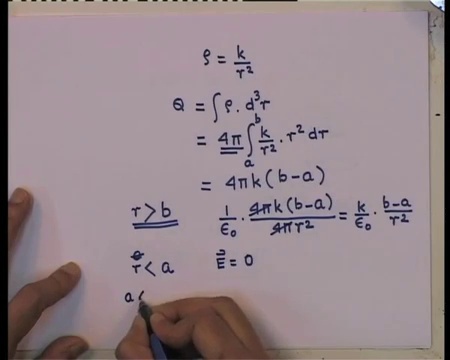 ρ = k/r²
Q = ∫ρ. d³r
= 4π ∫ₐᵇ k/r² · r² dr
= 4πk(b-a)
r > b 1/ε₀ · 4πk(b-a)/4πr² = k/ε₀ · b-a/r²
r < a E⃗ = 0
a <